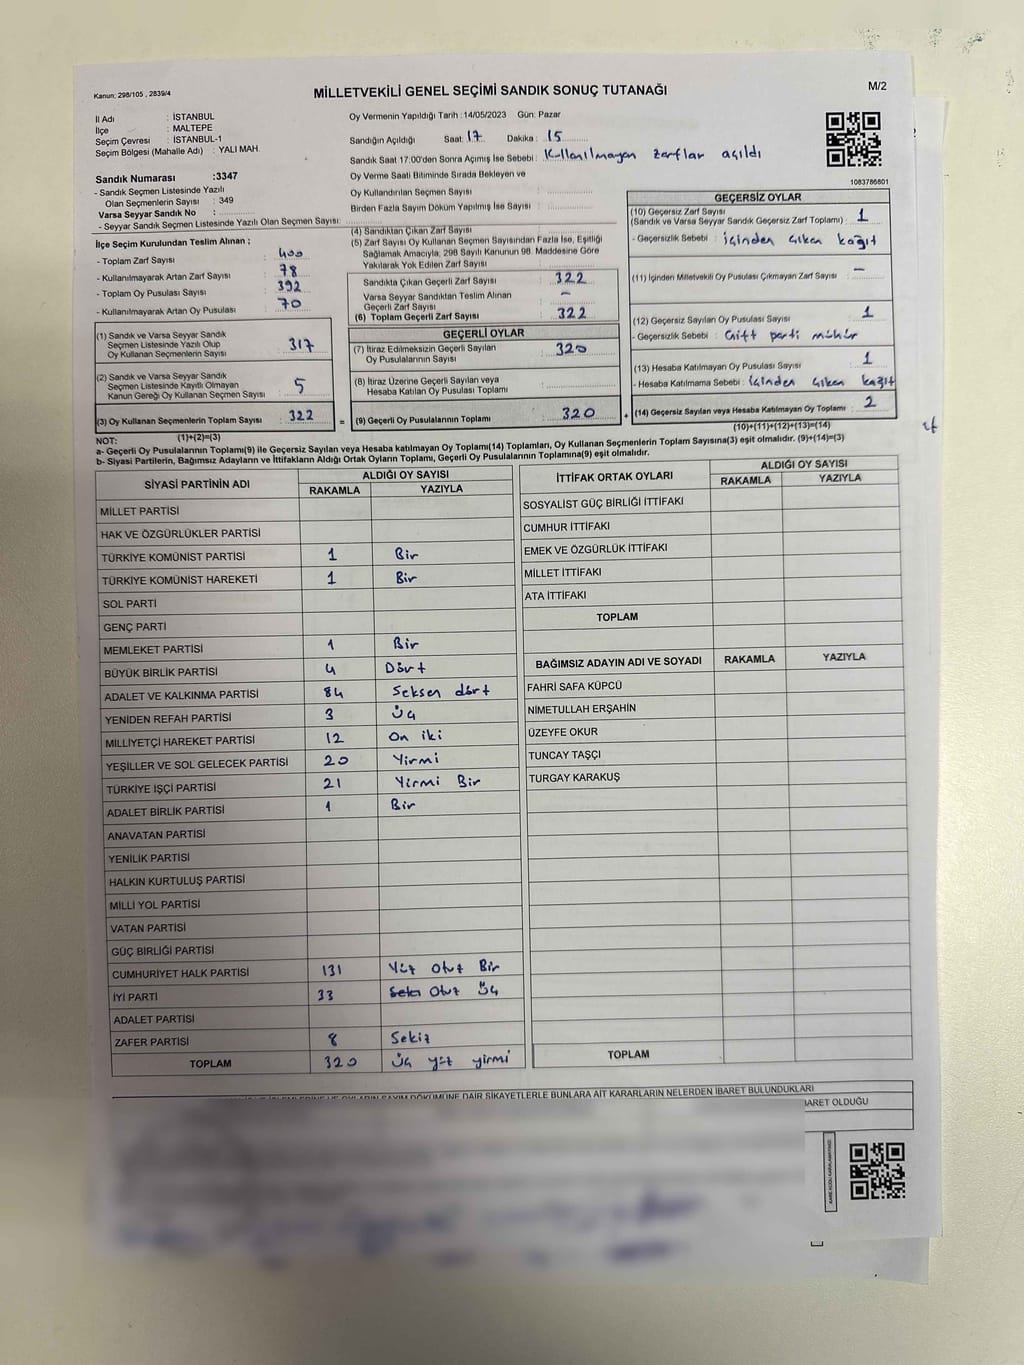 Kanun: 298/105 , 2839/4
MİLLETVEKİLİ GENEL SEÇİMİ SANDIK SONUÇ TUTANAĞI
M/2
İl Adı : İSTANBUL
İlçe : MALTEPE
Seçim Çevresi : İSTANBUL-1
Seçim Bölgesi (Mahalle Adı) : YALI MAH.
Sandık Numarası :3347
- Sandık Seçmen Listesinde Yazılı
Olan Seçmenlerin Sayısı : 349
Varsa Seyyar Sandık No :
- Seyyar Sandık Seçmen Listesinde Yazılı Olan Seçmen Sayısı:
Oy Vermenin Yapıldığı Tarih :14/05/2023 Gün: Pazar
Sandığın Açıldığı Saat: 17 Dakika : 15
Sandık Saat 17:00'den Sonra Açımış İse Sebebi : Kullanılmayan zarflar açıldı
Oy Verme Saati Bitiminde Sırada Bekleyen ve
Oy Kullandırılan Seçmen Sayısı :
Birden Fazla Sayım Döküm Yapılmış İse Sayısı :
1083786601
İlçe Seçim Kurulundan Teslim Alınan ;
- Toplam Zarf Sayısı : 400
- Kullanılmayarak Artan Zarf Sayısı : 78
- Toplam Oy Pusulası Sayısı : 392
- Kullanılmayarak Artan Oy Pusulası : 70
(1) Sandık ve Varsa Seyyar Sandık
Seçmen Listesinde Yazılı Olup
Oy Kullanan Seçmenlerin Sayısı : 317
(2) Sandık ve Varsa Seyyar Sandık
Seçmen Listesinde Kayıtlı Olmayan
Kanun Gereği Oy Kullanan Seçmen Sayısı : 5
(3) Oy Kullanan Seçmenlerin Toplam Sayısı : 322
(1)+(2)=(3)
(4) Sandıktan Çıkan Zarf Sayısı :
(5) Zarf Sayısı Oy Kullanan Seçmen Sayısından Fazla İse, Eşitliği
Sağlamak Amacıyla, 298 Sayılı Kanunun 98. Maddesine Göre
Yakılarak Yok Edilen Zarf Sayısı :
Sandıkta Çıkan Geçerli Zarf Sayısı : 322
Varsa Seyyar Sandıktan Teslim Alınan
Geçerli Zarf Sayısı : –
(6) Toplam Geçerli Zarf Sayısı : 322
GEÇERLİ OYLAR
(7) İtiraz Edilmeksizin Geçerli Sayılan
Oy Pusulalarının Sayısı : 320
(8) İtiraz Üzerine Geçerli Sayılan veya
Hesaba Katılan Oy Pusulası Toplamı :
= (9) Geçerli Oy Pusulalarının Toplamı : 320 +
GEÇERSİZ OYLAR
(10) Geçersiz Zarf Sayısı
(Sandık ve Varsa Seyyar Sandık Geçersiz Zarf Toplamı) : 1
- Geçersizlik Sebebi : içinden çıkan kağıt
(11) İçinden Milletvekili Oy Pusulası Çıkmayan Zarf Sayısı : –
(12) Geçersiz Sayılan Oy Pusulası Sayısı : 1
- Geçersizlik Sebebi : Çift parti mühür
(13) Hesaba Katılmayan Oy Pusulası Sayısı : 1
- Hesaba Katılmama Sebebi : içinden çıkan kağıt
(14) Geçersiz Sayılan veya Hesaba Katılmayan Oy Toplamı : 2
(10)+(11)+(12)+(13)=(14)
NOT:
a- Geçerli Oy Pusulalarının Toplamı(9) ile Geçersiz Sayılan veya Hesaba katılmayan Oy Toplamı(14) Toplamları, Oy Kullanan Seçmenlerin Toplam Sayısına(3) eşit olmalıdır. (9)+(14)=(3)
b- Siyasi Partilerin, Bağımsız Adayların ve İttifakların Aldığı Oyların Toplamı, Geçerli Oy Pusulalarının Toplamına(9) eşit olmalıdır.
SİYASİ PARTİNİN ADI ALDIĞI OY SAYISI
RAKAMLA YAZIYLA
MİLLET PARTİSİ
HAK VE ÖZGÜRLÜKLER PARTİSİ
TÜRKİYE KOMÜNİST PARTİSİ 1 Bir
TÜRKİYE KOMÜNİST HAREKETİ 1 Bir
SOL PARTİ
GENÇ PARTİ
MEMLEKET PARTİSİ 1 Bir
BÜYÜK BİRLİK PARTİSİ 4 Dört
ADALET VE KALKINMA PARTİSİ 84 Seksen dört
YENİDEN REFAH PARTİSİ 3 Üç
MİLLİYETÇİ HAREKET PARTİSİ 12 On iki
YEŞİLLER VE SOL GELECEK PARTİSİ 20 Yirmi
TÜRKİYE İŞÇİ PARTİSİ 21 Yirmi Bir
ADALET BİRLİK PARTİSİ 1 Bir
ANAVATAN PARTİSİ
YENİLİK PARTİSİ
HALKIN KURTULUŞ PARTİSİ
MİLLİ YOL PARTİSİ
VATAN PARTİSİ
GÜÇ BİRLİĞİ PARTİSİ
CUMHURİYET HALK PARTİSİ 131 Yüz Otuz Bir
İYİ PARTİ 33 Otuz Üç
ADALET PARTİSİ
ZAFER PARTİSİ 8 Sekiz
TOPLAM 320 Üç yüz yirmi
İTTİFAK ORTAK OYLARI ALDIĞI OY SAYISI
RAKAMLA YAZIYLA
SOSYALİST GÜÇ BİRLİĞİ İTTİFAKI
CUMHUR İTTİFAKI
EMEK VE ÖZGÜRLÜK İTTİFAKI
MİLLET İTTİFAKI
ATA İTTİFAKI
TOPLAM
BAĞIMSIZ ADAYIN ADI VE SOYADI RAKAMLA YAZIYLA
FAHRİ SAFA KÜPCÜ
NİMETULLAH ERŞAHİN
ÜZEYFE OKUR
TUNCAY TAŞÇI
TURGAY KARAKUŞ
TOPLAM
DÖKÜMÜNE DAİR ŞİKAYETLERLE BUNLARA AİT KARARLARIN NELERDEN İBARET BULUNDUKLARI
OLDUĞU